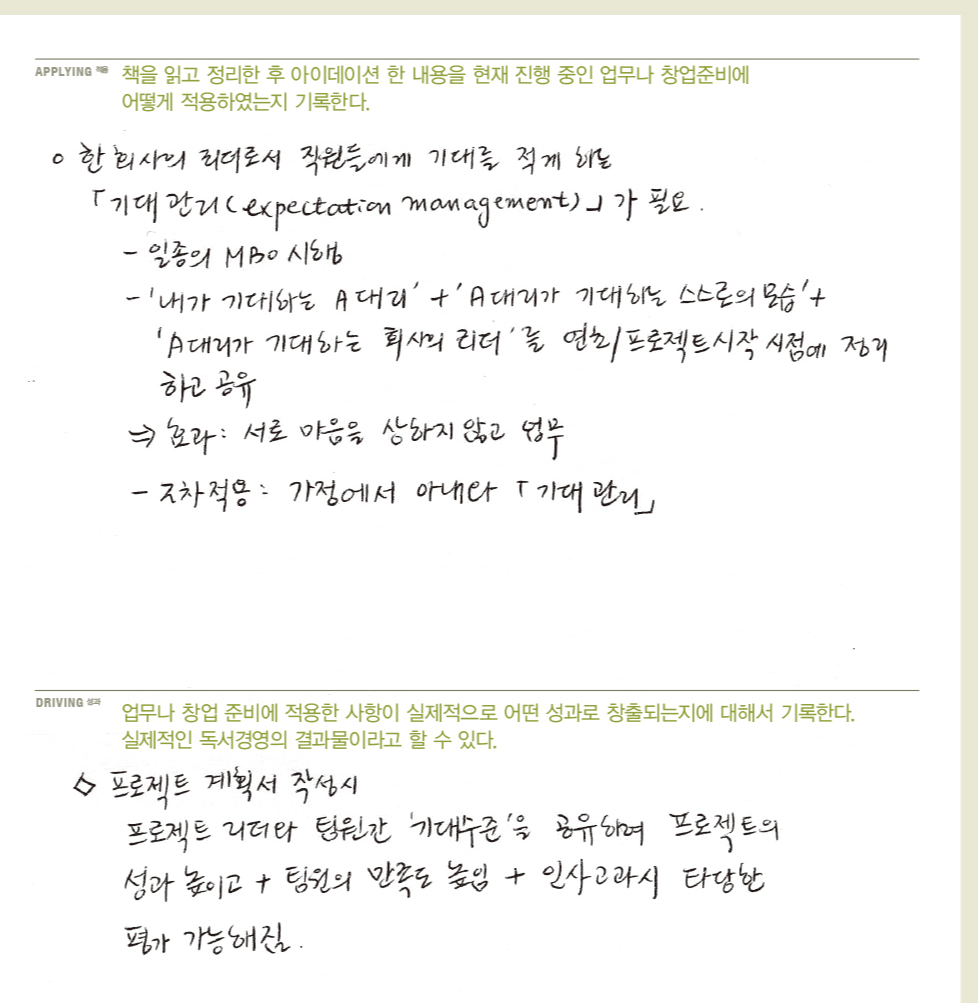 APPLYING 적용 책을 읽고 정리한 후 아이데이션 한 내용을 현재 진행 중인 업무나 창업준비에
어떻게 적용하였는지 기록한다.
○ 한 회사의 리더로서 직원들에게 기대를 적게 하는
「기대관리(expectation management)」가 필요.
- 일종의 MBO 시행
- '내가 기대하는 A대리' + 'A대리가 기대하는 스스로의 모습' +
'A대리가 기대하는 회사의 리더'를 연초/프로젝트시작 시점에 정리
하고 공유
⇒ 효과: 서로 마음을 상하지 않고 업무
- 2차적용: 가정에서 아내와 「기대관리」
DRIVING 성과 업무나 창업 준비에 적용한 사항이 실제적으로 어떤 성과로 창출되는지에 대해서 기록한다.
실제적인 독서경영의 결과물이라고 할 수 있다.
◇ 프로젝트 계획서 작성시
프로젝트 리더와 팀원간 '기대수준'을 공유하며 프로젝트의
성과 높이고 + 팀원의 만족도 높임 + 인사고과시 타당한
평가 가능해짐.